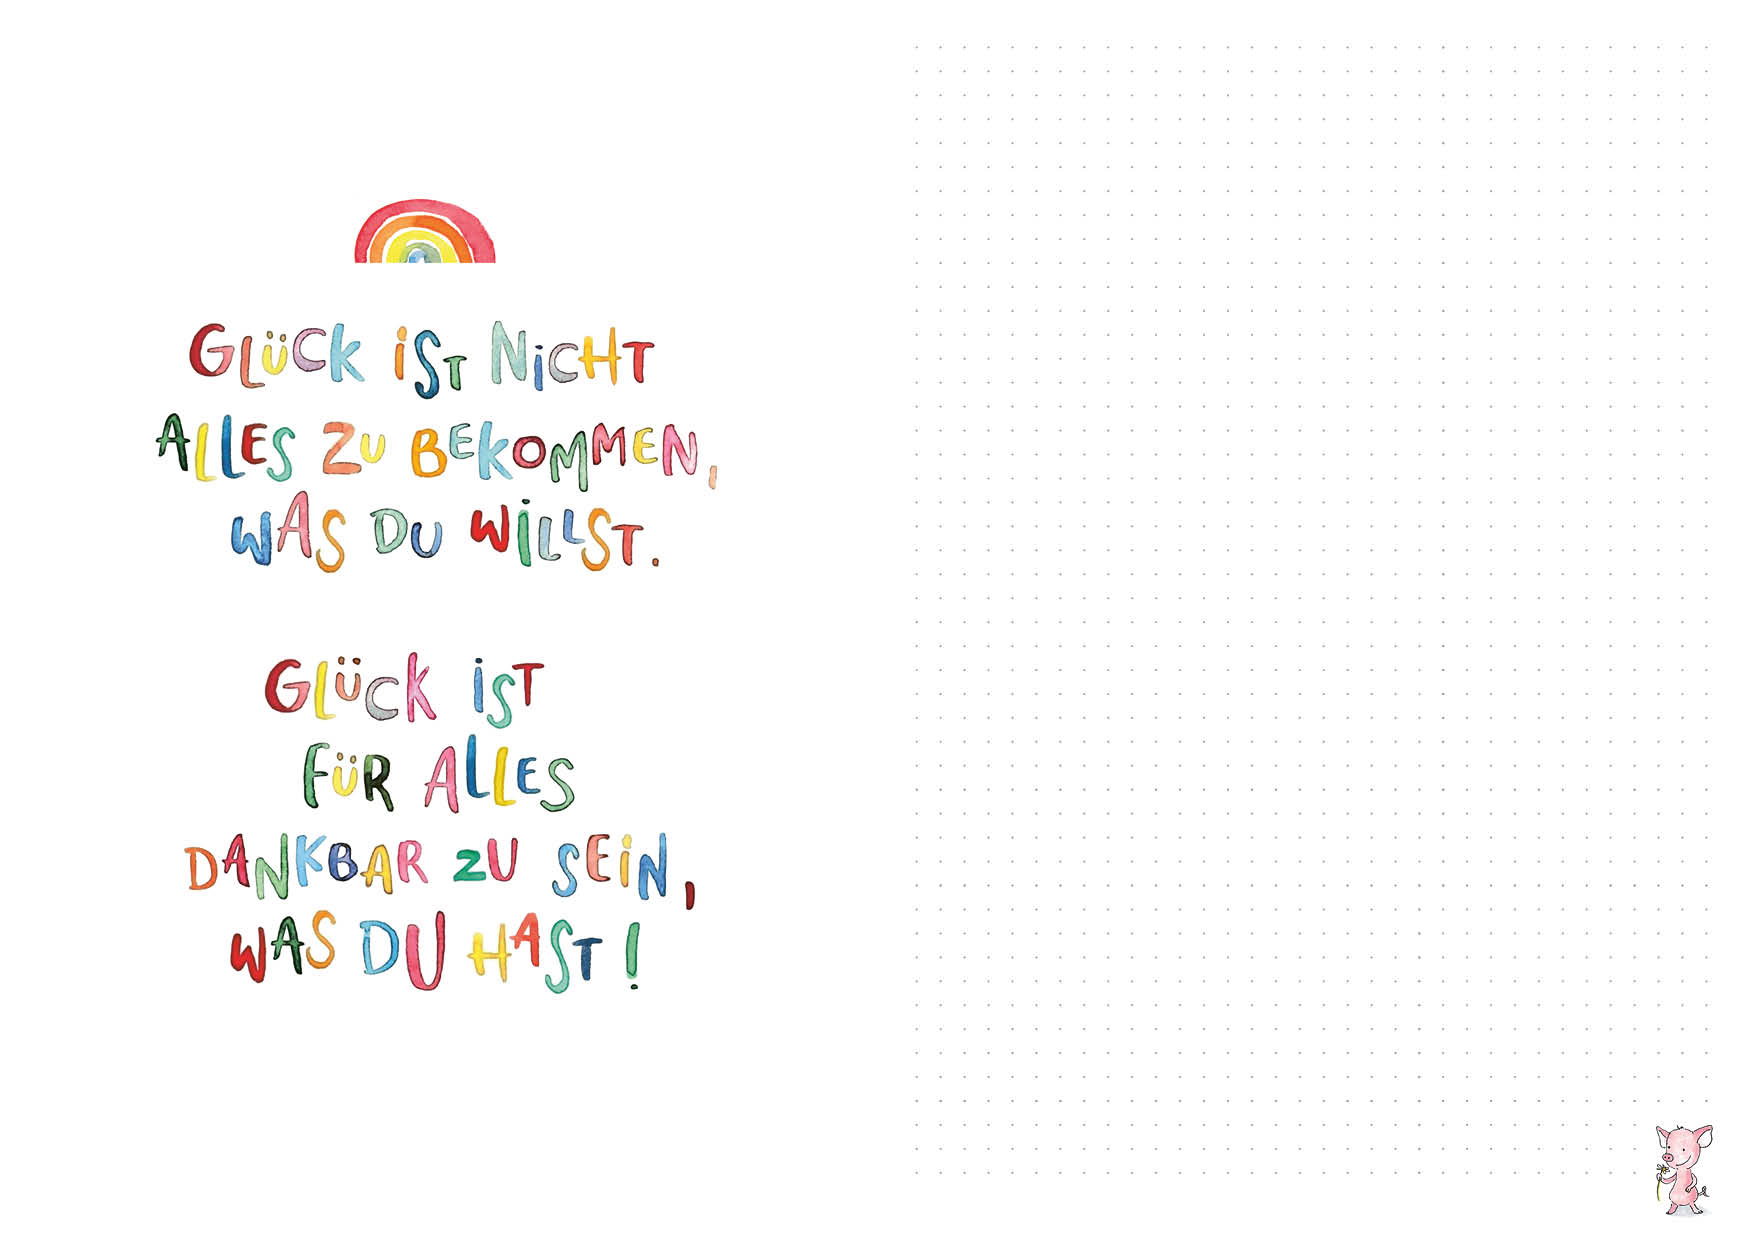 GLÜCK iST NiCHT
ALLES ZU BEKOMMEN,
WAS DU WiLLST.
GLÜCK iST
FÜR ALLES
DANKBAR ZU SEiN,
WAS DU HAST!